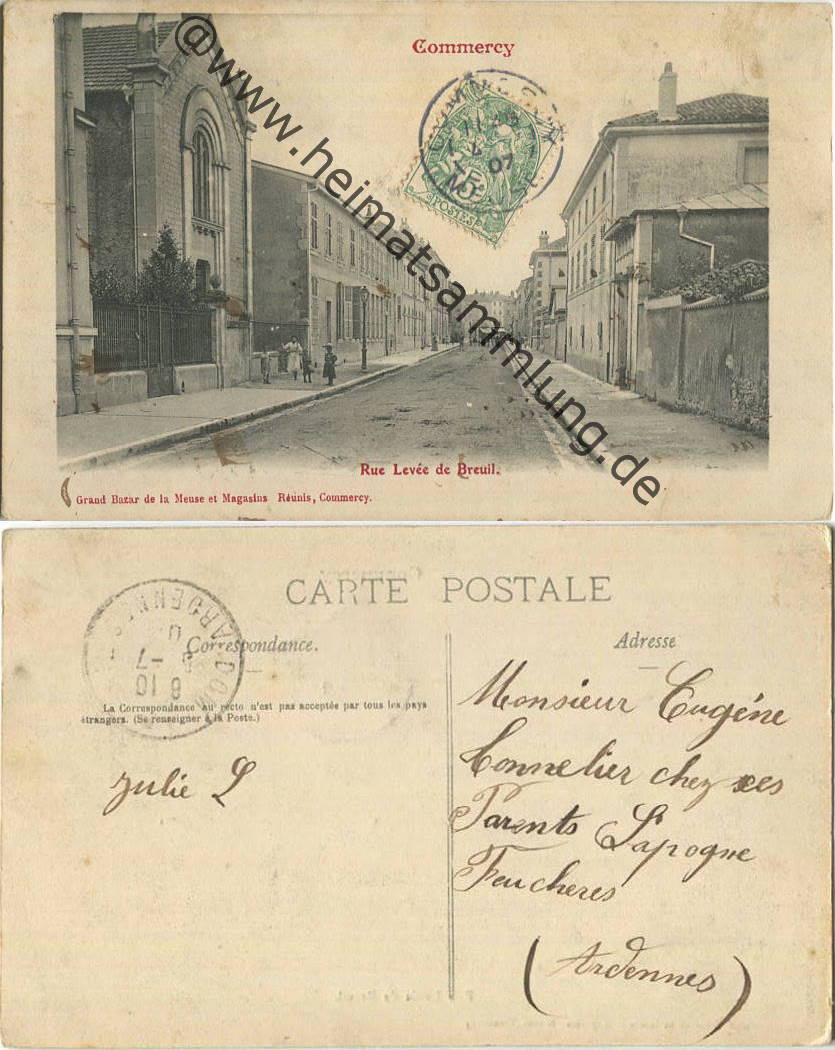 Commercy
@www.heimatsammlung.de
07
POSTES
Rue Levée de Breuil.
Grand Bazar de la Meuse et Magasins Réunis, Commercy.
CARTE POSTALE
ARDENNES
Correspondance.
Adresse
La Correspondance au recto n'est pas acceptée par tous les pays
étrangers. (Se renseigner à la Poste.)
Julie L
Monsieur Eugéne
Connelier chez ses
Parents Sapogne
Feucheres
(Ardennes)